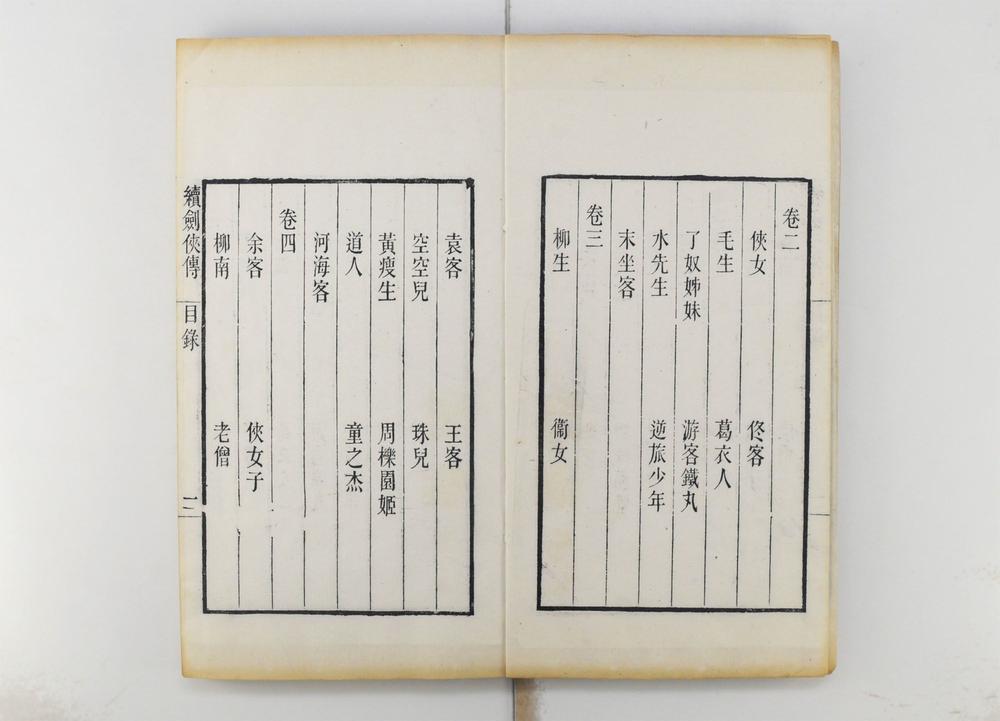 卷二
俠女 佟客
毛生 葛衣人
了奴姊妹 游客鐵丸
水先生 逆旅少年
末坐客
卷三
柳生 衞女
袁客 王客
空空兒 珠兒
黃瘦生 周櫟園姬
道人 童之杰
河海客
卷四
余客 俠女子
柳南 老僧
續劍俠傳 目錄 二